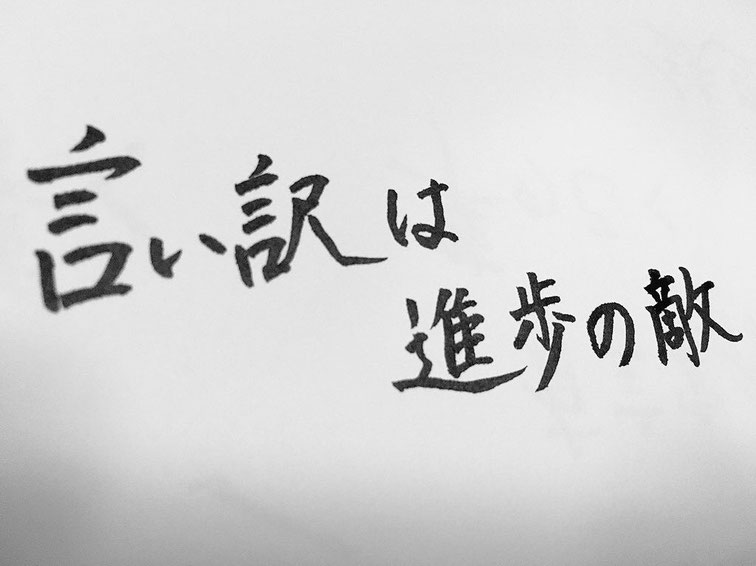 言い訳は
進歩の敵